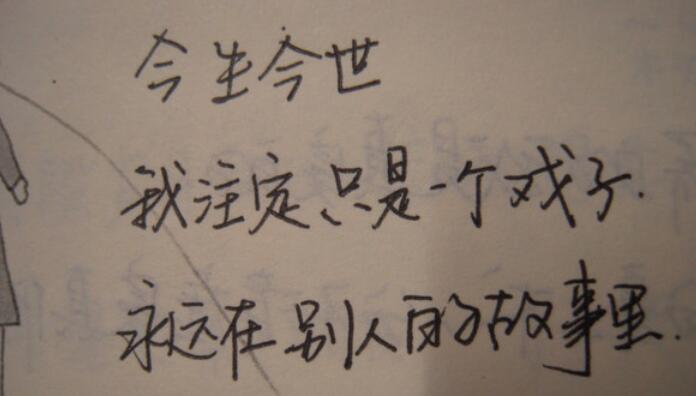 今生今世
我注定只是一个戏子.
永远在别人的故事里.